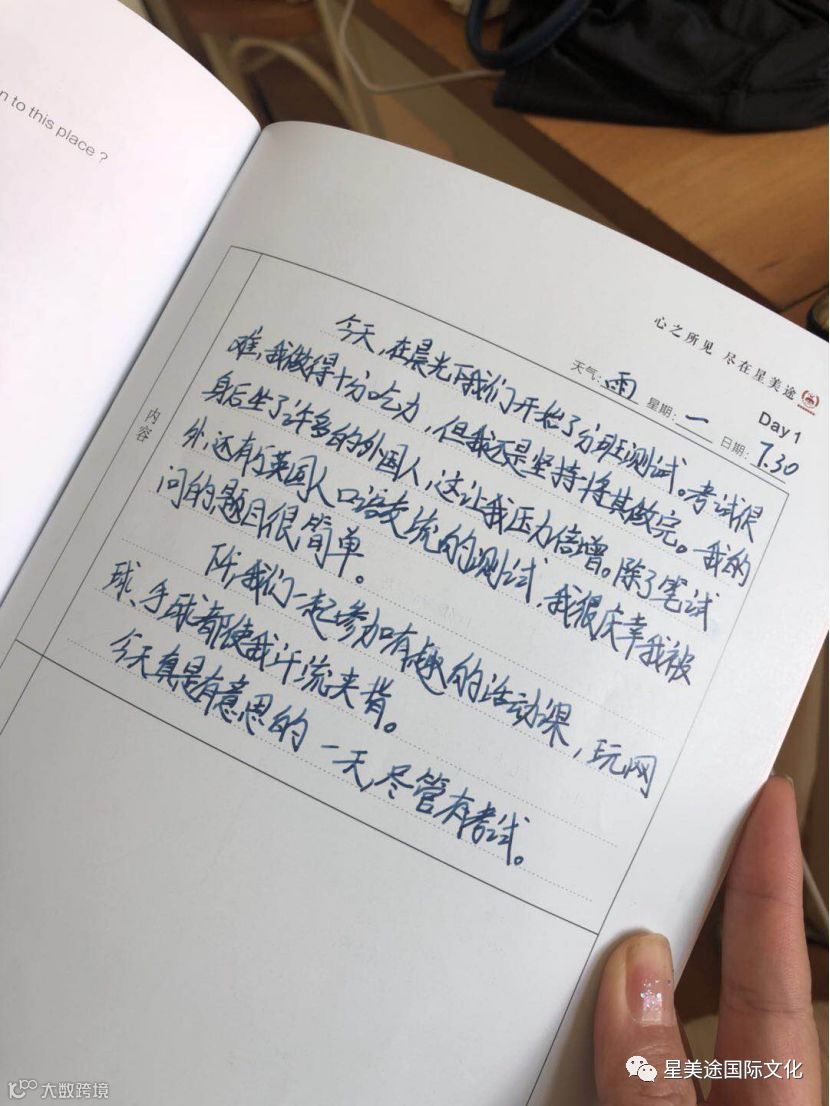 n to this place ?
心之所见 尽在星美途
Day 1
天气: 雨 星期: 一 日期: 7.30
内容
今天,在晨光下我们开始了分班测试。考试很
难,我做得十分吃力,但我还是坚持将其做完。我的
身后坐了许多的外国人,这让我压力倍增。除了笔试
外,还有个英国人口语交流的测试,我很庆幸我被
问的题目很简单。
我们一起参加有趣的活动课,玩网
球、手球都使我汗流夹背。
今天真是有意思的一天,尽管有考试。
大数跨境
星美途国际文化